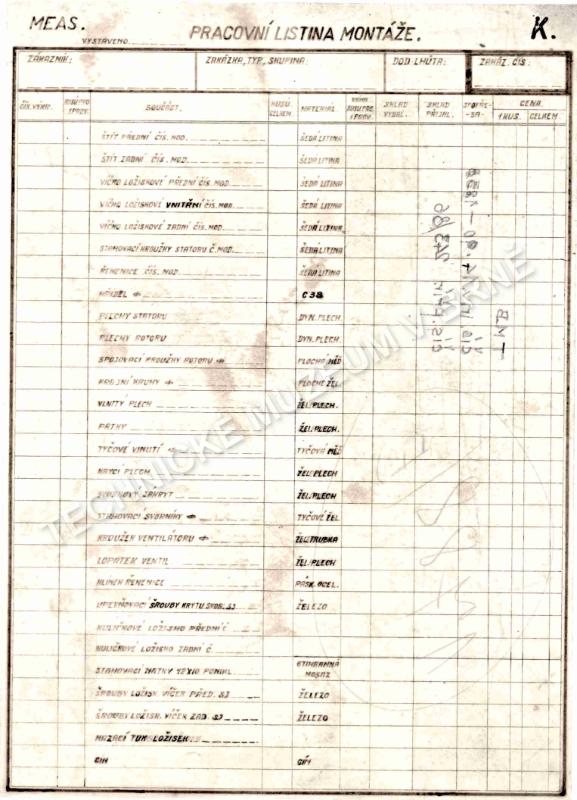 MEAS.
VYSTAVENO
PRACOVNÍ LISTINA MONTÁŽE.
K.
ZÁKAZNÍK:
ZAKÁZKA, TYP, SKUPINA:
DOD. LHŮTA:
ZAKÁZ. ČÍS:
ČÍS. VÝKR.
SOUČÁST.
KUSŮ CELKEM
MATERIAL
SKLAD VYDAL.
SKLAD PŘIJAL.
SPOTŘE-BA-
CENA.
1 KUS.
CELKEM
ŠTÍT PŘEDNÍ ČÍS. MOD. ŠEDÁ LITINA
ŠTÍT ZADNÍ ČÍS. MOD. ŠEDÁ LITINA
VÍČKO LOŽISKOVÉ PŘEDNÍ ČÍS. MOD. ŠEDÁ LITINA
VÍČKO LOŽISKOVÉ VNITŘNÍ ČÍS. MOD. ŠEDÁ LITINA
VÍČKO LOŽISKOVÉ ZADNÍ ČÍS. MOD. ŠEDÁ LITINA
STAHOVACÍ KROUŽKY STATORU Č. MOD. ŠEDÁ LITINA
ŘEMENICE ČÍS. MOD. ŠEDÁ LITINA
HŘÍDEL C 38
PLECHY STATORU DYN. PLECH.
PLECHY ROTORU DYN. PLECH.
SPOJOVACÍ KROUŽKY ROTORU PLOCHÁ MĚĎ
KRAJNÍ KRUHY PLOCHÉ ŽEL.
VLNITÝ PLECH ŽEL. PLECH.
PATKY ŽEL. PLECH.
TYČOVÉ VINUTÍ TYČOVÁ MĚĎ
KRYCÍ PLECH ŽEL. PLECH
SVORKOVÝ ZÁKRYT ŽEL. PLECH
STAHOVACÍ SVORNÍKY TYČOVÉ ŽEL
KROUŽEK VENTILÁTORU ŽEL. TRUBKA
LOPATEK VENTIL ŽEL. PLECH
KLÍNEK ŘEMENICE PÁSK. OCEL.
UPEVŇOVACÍ ŠROUBY KRYTU SVOR. SJ ŽELEZO
KULIČKOVÉ LOŽISKO PŘEDNÍ Č
KULIČKOVÉ LOŽISKO ZADNÍ Č.
STAHOVACÍ MATKY PONIKL. MOSAZ
ŠROUBY LOŽISK. VÍČEK PŘED. SJ ŽELEZO
ŠROUBY LOŽISK. VÍČEK ZAD. SJ ŽELEZO
MAZACÍ TUK LOŽISEK
CÍN CÍN
TECHNICKÉ MUZEUM V BRNĚ